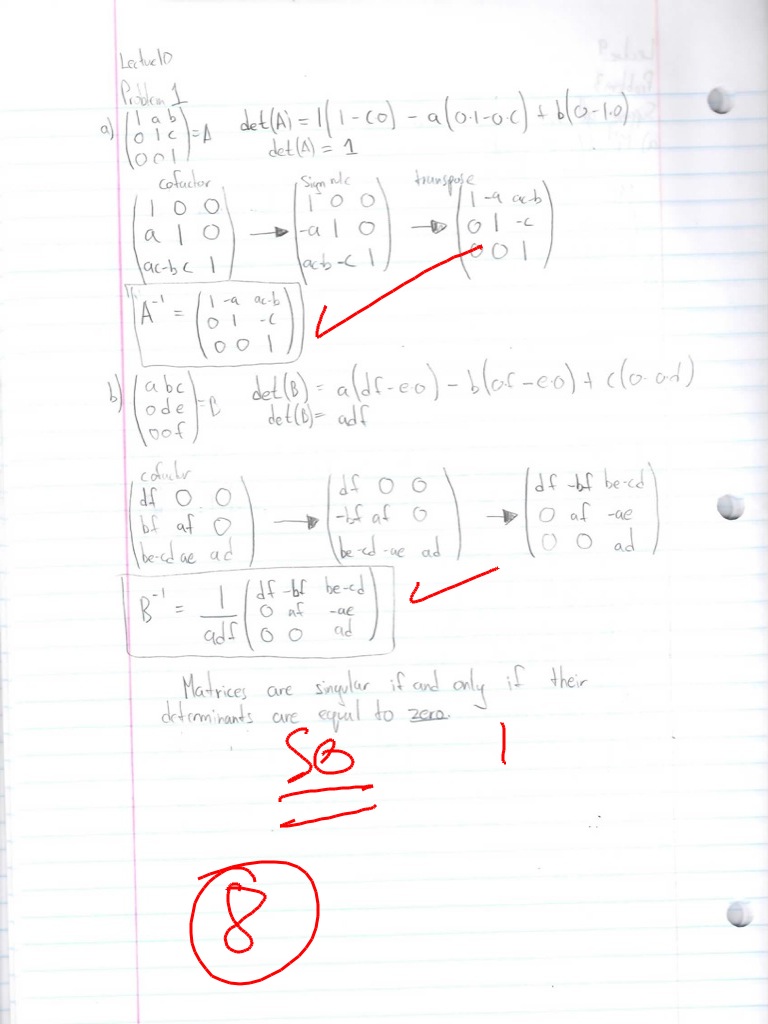 Lecture 10
Problem 1
a) (1 a b
0 1 c
0 0 1) = A
det(A) = 1(1 - c0) - a(0·1 - 0·c) + b(0 - 1·0)
det(A) = 1
cofactor sign rule transpose
(1 0 0
a 1 0
ac-b c 1) → (1 0 0
-a 1 0
ac-b -c 1) → (1 -a ac-b
0 1 -c
0 0 1)
A⁻¹ = (1 -a ac-b
0 1 -c
0 0 1)
b) (a b c
0 d e
0 0 f) = B
det(B) = a(df - e·0) - b(0·f - e·0) + c(0·0·d)
det(B) = adf
cofactor
(df 0 0
bf af 0
be-cd ae ad) → (df 0 0
-bf af 0
be-cd -ae ad) → (df -bf be-cd
0 af -ae
0 0 ad)
B⁻¹ = 1/adf (df -bf be-cd
0 af -ae
0 0 ad)
Matrices are singular if and only if their
determinants are equal to zero.
SB 1
8